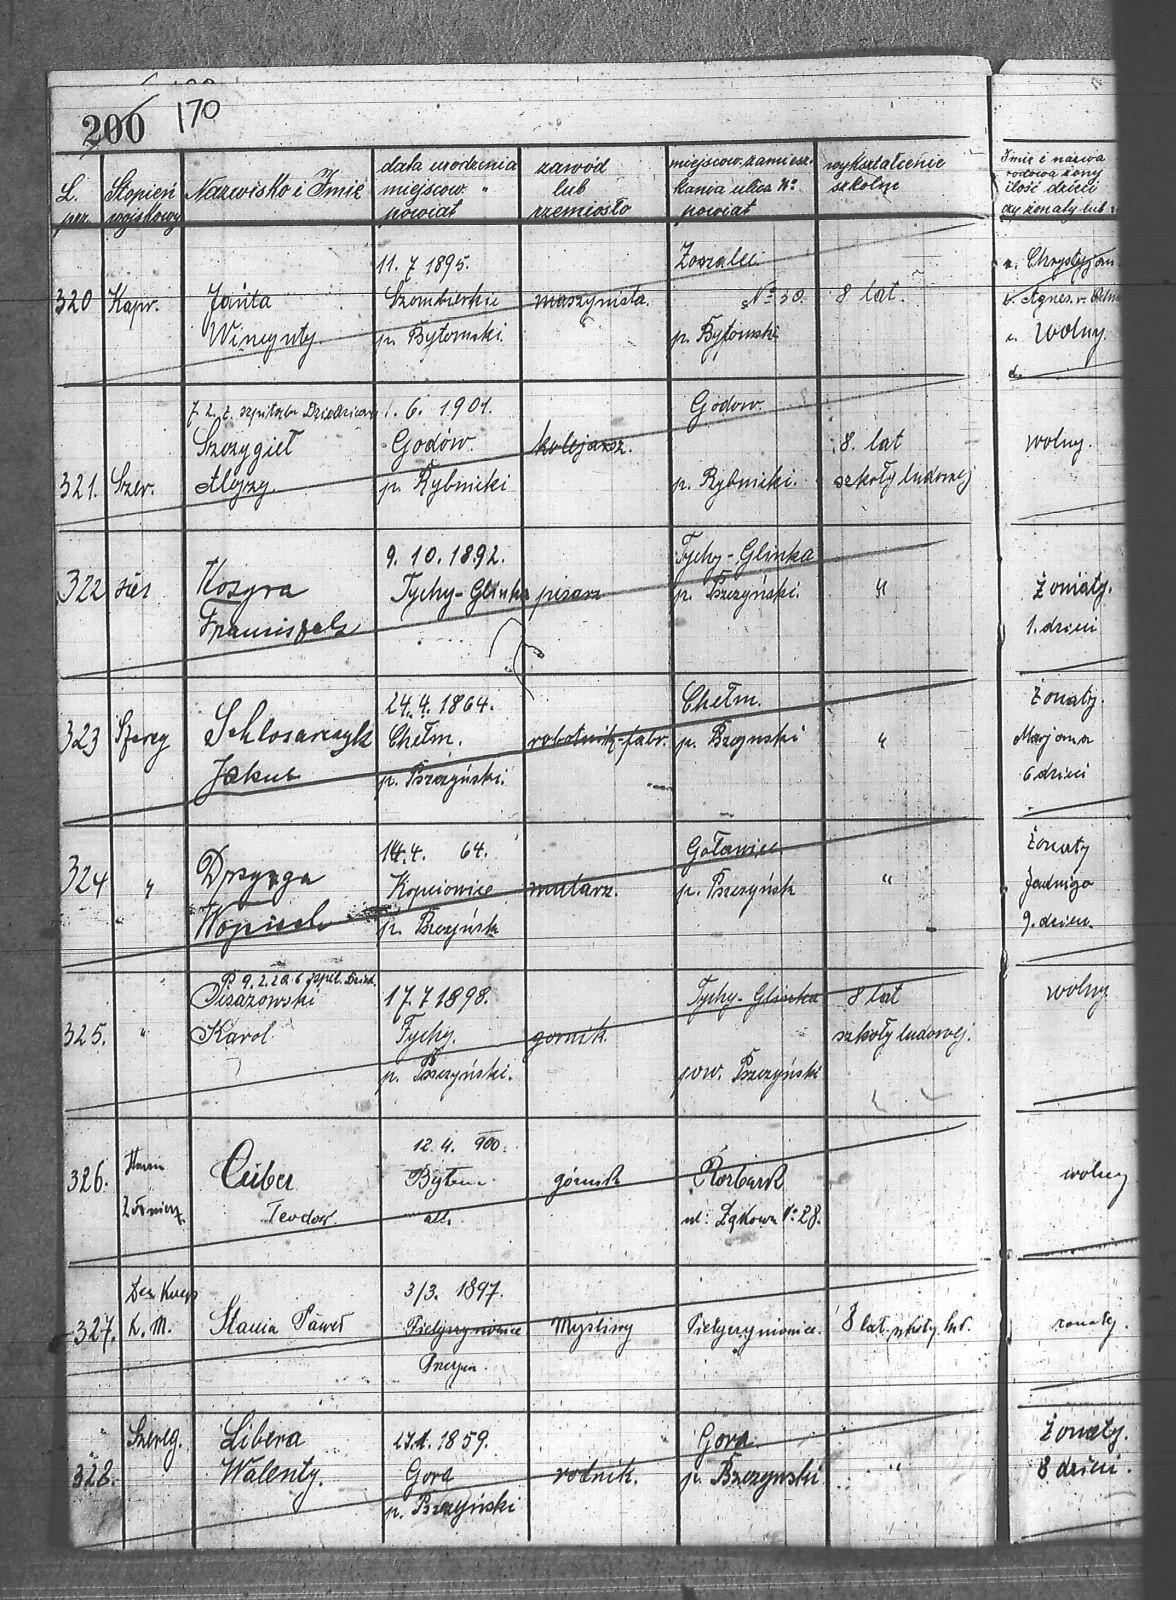 200 170
L. prz.
Stopień wojskowy
Nazwisko i Imię
data urodzenia
miejscow. "
powiat
zawód
lub
rzemiosło
miejscow. zamiesz-
kania ulica No
powiat
wykształcenie
szkolne
Imię i nazwa
rodowa żony
ilość dzieci
czy żonaty lub
11. 7 1895.
Zoszalec
a. Chrystyjan
320 Kapr. Janta Szombierkie maszynista. No 30. 8 lat.
b. Agnes.
Wincynty. p. Bytomski. p. Bytomski
c. wolny.
d.
7. 2. z. szpitala Dziedzicow 1. 6. 1901. Godow.
Szczygieł Godów. kolejarz. 8. lat wolny.
321. Szer. Alojzy. p. Rybnicki p. Rybnicki. szkoły ludowej
9. 10. 1892. Tychy-Glinka
322 sier Kozyra Tychy-Glinka pisarz p. Pszczyński. " żoniaty.
Franciszek 1. dzieci
24. 4. 1864. Chełm. żonaty.
323 Szereg Schlosarczyk Chełm. robotnik-fabr. p. Pszczynski " Marjana
Jakub p. Pszczyński. 6 dzieci
14. 4. 64. Goławiec żonaty
324 " Drzyzga Kopciowice mularz. p. Pszczyńsk " Jadwiga
Wojciech p. Pszczyńsk 9. dzieci.
P 9. 2. 20. 6 szpit. Dzied.
Pisazowski 17. 7 1898. Tychy-Glinka 8 lat wolny
325. " Karol Tychy. gornik. szkoły ludowej.
p. Pszczyński. pow. Pszczyński
12. 4. 900.
326. Cuber Bytom górnik Rozbark wolny
żołnierz Teodor. ul: Łąkowa No 28.
3/3. 1897.
327. K. M. Stania Paweł Pielgrzymowice Myśliwy Pielgrzymowice. 8 lat szkoły lud. zonaty.
Pszczyn.
Szereg. Libera 1. 1859. Gora żonaty.
328. Walenty. Gora rolnik. p. Pszczynski " 8 dzieci.
p. Pszczyński